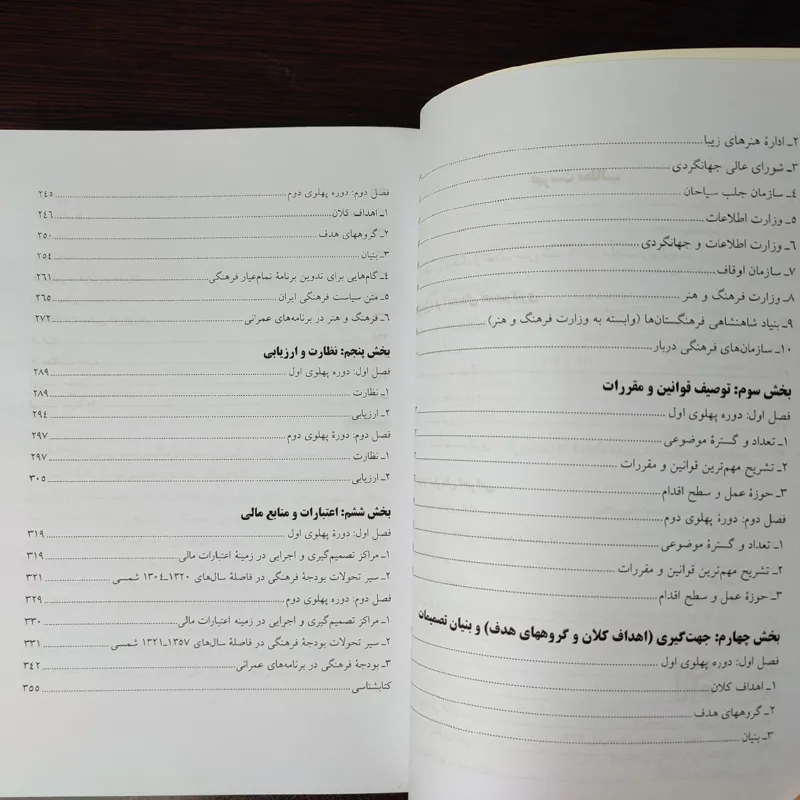 ۲ـ ادارهٔ هنرهای زیبا
۳ـ شورای عالی جهانگردی
۴ـ سازمان جلب سیاحان
۵ـ وزارت اطلاعات
۶ـ وزارت اطلاعات و جهانگردی
۷ـ سازمان اوقاف
۸ـ وزارت فرهنگ و هنر
۹ـ بنیاد شاهنشاهی فرهنگستان‌ها (وابسته به وزارت فرهنگ و هنر)
۱۰ـ سازمان‌های فرهنگی دربار
بخش سوم: توصیف قوانین و مقررات
فصل اول: دوره پهلوی اول
۱ـ تعداد و گسترهٔ موضوعی
۲ـ تشریح مهم‌ترین قوانین و مقررات
۳ـ حوزهٔ عمل و سطح اقدام
فصل دوم: دورهٔ پهلوی دوم
۱ـ تعداد و گسترهٔ موضوعی
۲ـ تشریح مهم‌ترین قوانین و مقررات
۳ـ حوزهٔ عمل و سطح اقدام
بخش چهارم: جهت‌گیری (اهداف کلان و گروههای هدف) و بنیان تصمیمات
فصل اول: دوره پهلوی اول
۱ـ اهداف کلان
۲ـ گروههای هدف
۳ـ بنیان
فصل دوم: دوره پهلوی دوم ۲۴۵
۱ـ اهداف کلان ۲۴۶
۲ـ گروههای هدف ۲۵۰
۳ـ بنیان ۲۵۴
۴ـ گام‌هایی برای تدوین برنامهٔ تمام‌عیار فرهنگی ۲۶۱
۵ـ متن سیاست فرهنگی ایران ۲۶۵
۶ـ فرهنگ و هنر در برنامه‌های عمرانی ۲۷۲
بخش پنجم: نظارت و ارزیابی
فصل اول: دوره پهلوی اول ۲۸۹
۱ـ نظارت ۲۸۹
۲ـ ارزیابی ۲۹۴
فصل دوم: دوره پهلوی دوم ۲۹۷
۱ـ نظارت ۲۹۷
۲ـ ارزیابی ۳۰۵
بخش ششم: اعتبارات و منابع مالی
فصل اول: دورهٔ پهلوی اول ۳۱۹
۱ـ مراکز تصمیم‌گیری و اجرایی در زمینهٔ اعتبارات مالی ۳۱۹
۲ـ سیر تحولات بودجهٔ فرهنگی در فاصلهٔ سال‌های ۱۳۲۰ـ۱۳۰۴ شمسی ۳۲۱
فصل دوم: دوره پهلوی دوم ۳۲۹
۱ـ مراکز تصمیم‌گیری و اجرایی در زمینه اعتبارات مالی ۳۳۰
۲ـ سیر تحولات بودجهٔ فرهنگی در فاصلهٔ سال‌های ۱۳۵۷ـ۱۳۲۱ شمسی ۳۳۱
۳ـ بودجهٔ فرهنگی در برنامه‌های عمرانی ۳۴۲
کتابشناسی ۳۵۵